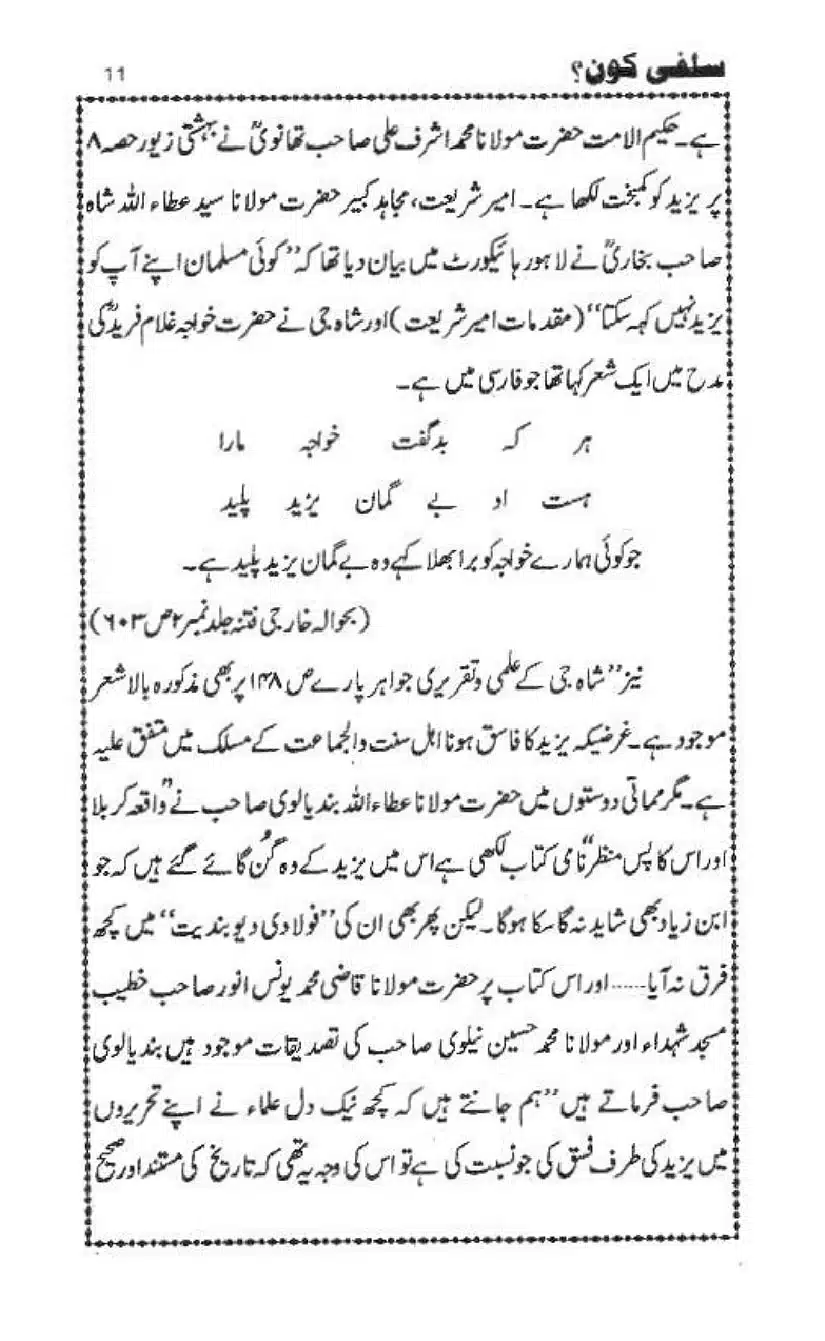 سلفی کون؟ 11
ہے۔ حکیم الامت حضرت مولانا محمد اشرف علی صاحب تھانویؒ نے بہشتی زیور حصہ ۸
پر یزید کو کمبخت لکھا ہے۔ امیر شریعت، مجاہد کبیر حضرت مولانا سید عطاء اللہ شاہ
صاحب بخاریؒ نے لاہور ہائیکورٹ میں بیان دیا تھا کہ ”کوئی مسلمان اپنے آپ کو
یزید نہیں کہہ سکتا“ (مقدمات امیر شریعت) اور شاہ جی نے حضرت خواجہ غلام فریدؒ کی
مدح میں ایک شعر کہا تھا جو فارسی میں ہے۔
ہر کہ بدگفت خواجہ مارا
ہست او بے گمان یزید پلید
جو کوئی ہمارے خواجہ کو برا بھلا کہے وہ بے گمان یزید پلید ہے۔
(بحوالہ خارجی فتنہ جلد نمبر ۲ ص ۶۰۳)
نیز ”شاہ جی کے علمی و تقریری جواہر پارے ص ۱۴۸ پر بھی مذکورہ بالا شعر
موجود ہے۔ غرضیکہ یزید کا فاسق ہونا اہل سنت والجماعت کے مسلک میں متفق علیہ
ہے۔ مگر مماتی دوستوں میں حضرت مولانا عطاء اللہ بندیالوی صاحب نے ”واقعہ کربلا
اور اس کا پس منظر“ نامی کتاب لکھی ہے اس میں یزید کے وہ گُن گائے گئے ہیں کہ جو
ابن زیاد بھی شاید نہ گا سکا ہوگا۔ لیکن پھر بھی ان کی ”فولادی دیوبندیت“ میں کچھ
فرق نہ آیا...... اور اس کتاب پر حضرت مولانا قاضی محمد یونس انور صاحب خطیب
مسجد شہداء اور مولانا محمد حسین نیلوی صاحب کی تصدیقات موجود ہیں بندیالوی
صاحب فرماتے ہیں ”ہم جانتے ہیں کہ کچھ نیک دل علماء نے اپنے تحریروں
میں یزید کی طرف فسق کی جو نسبت کی ہے تو اس کی وجہ یہ تھی کہ تاریخ کی مستند اور صحیح